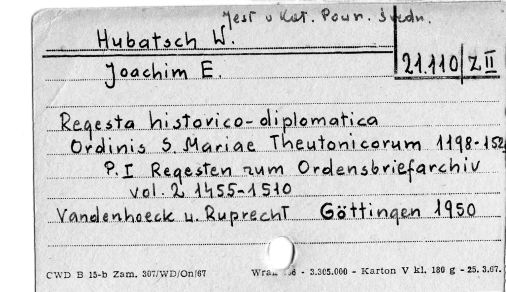 Jest v Kat. Pown. Średn.
Hubatsch W.
Joachim E.
21.110/Z II
Regesta historico-diplomatica
Ordinis S. Mariae Theutonicorum 1198-152
P.I Regesten zum Ordensbriefarchiv
vol. 2 1455-1510
Vandenhoeck u. Ruprecht Göttingen 1950
CWD B 15-b Zam. 307/WD/On/67 - 3.305.000 - Karton V kl. 180 g - 25.3.67.